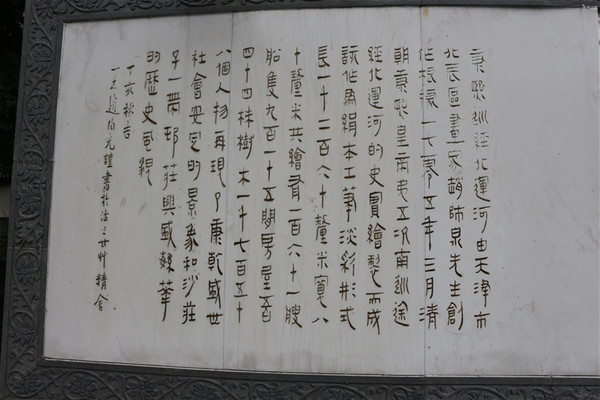 康熙巡經北運河由天津市
北辰區畫家趙師泉先生創
作根據一七零五年三月清
朝康熙皇帝第五次南巡途
經北運河的史實繪製而成
該作為絹本工筆淡彩形式
長一千二百六十釐米寬八
十釐米共繪有一百六十一艘
船隻九百一十五間房屋五百
四十四株樹木一千七百五十
八個人物再現了康乾盛世
社會安定的景象和沙莊
子一帶邨莊興盛繁華
的歷史風貌
丁亥秋吉
趙伯光謹書於沽上艸精舍